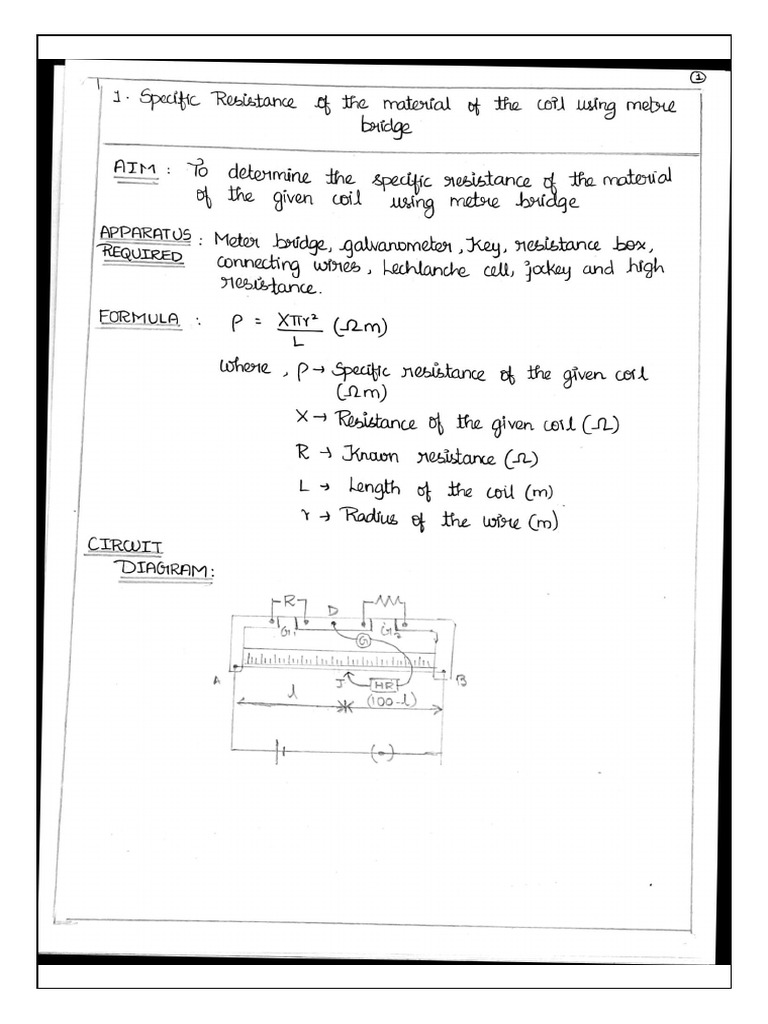 1
1. Specific Resistance of the material of the coil using metre
bridge
AIM : To determine the specific resistance of the material
of the given coil using metre bridge
APPARATUS
REQUIRED : Meter bridge, galvanometer, Key, resistance box,
connecting wires, Lechlanche cell, jockey and high
resistance.
FORMULA : ρ = Xπr² / L (Ωm)
where, ρ → Specific resistance of the given coil
(Ωm)
X → Resistance of the given coil (Ω)
R → Known resistance (Ω)
L → Length of the coil (m)
r → Radius of the wire (m)
CIRCUIT
DIAGRAM:
R
D
G1
G
G2
A
J
HR
B
l
(100-l)